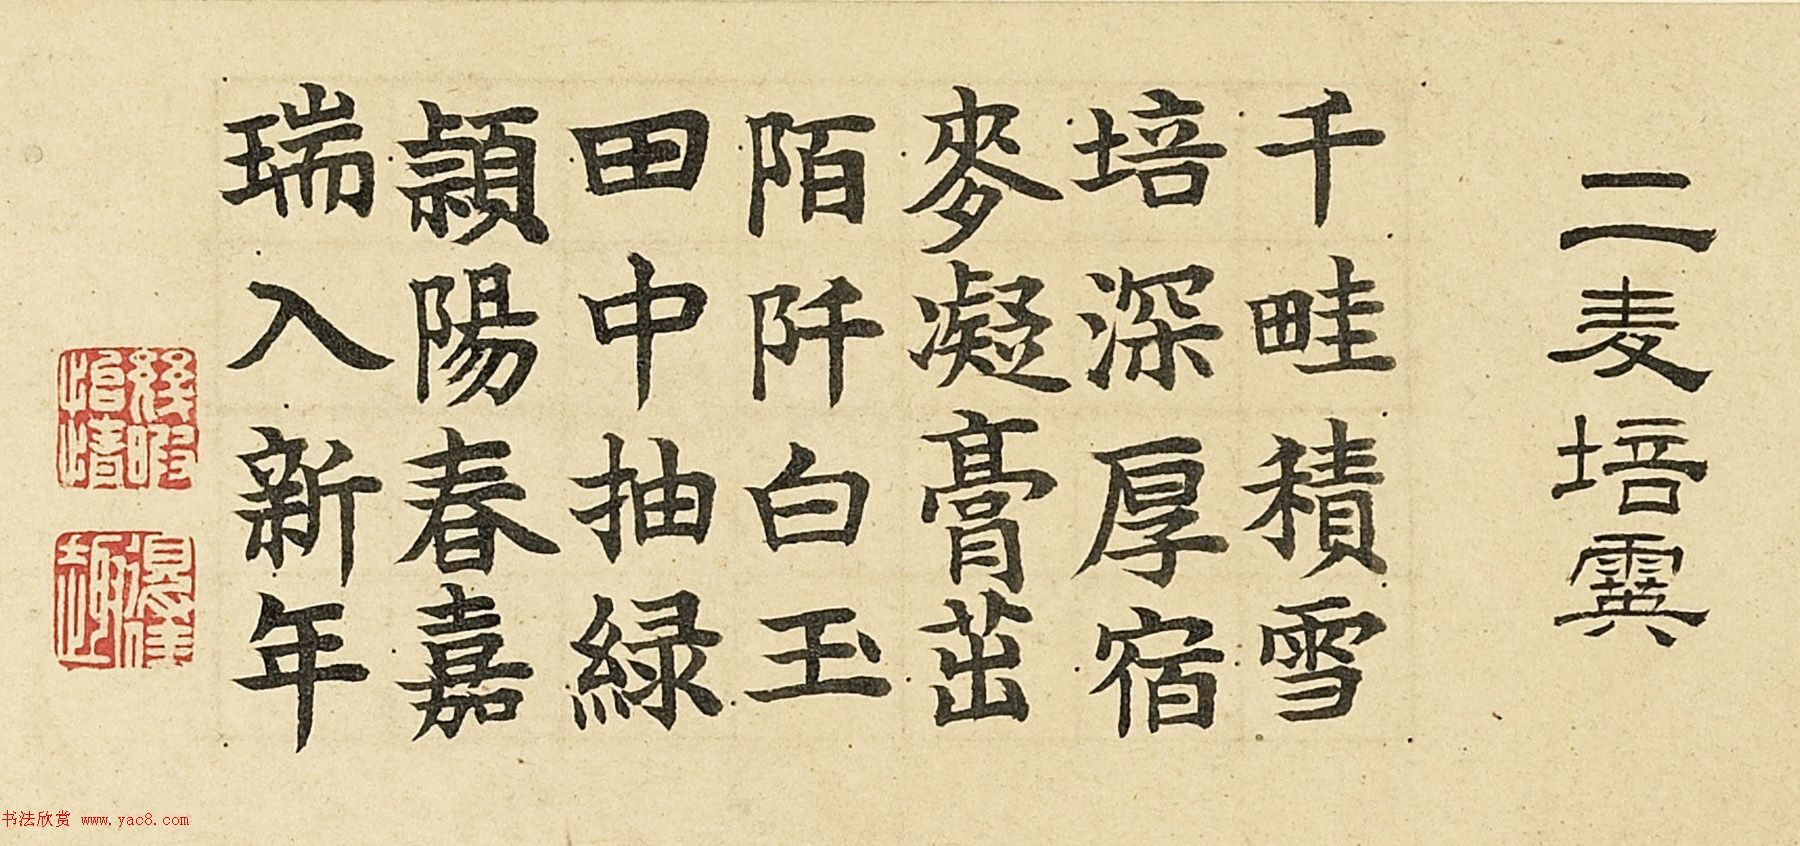 二麦培霙
千畦積雪
培深厚宿
麥凝膏茁
陌阡白玉
田中抽緑
頴陽春嘉
瑞入新年
幾暇
怡情
得佳
趣
书法欣赏 www.yac8.com